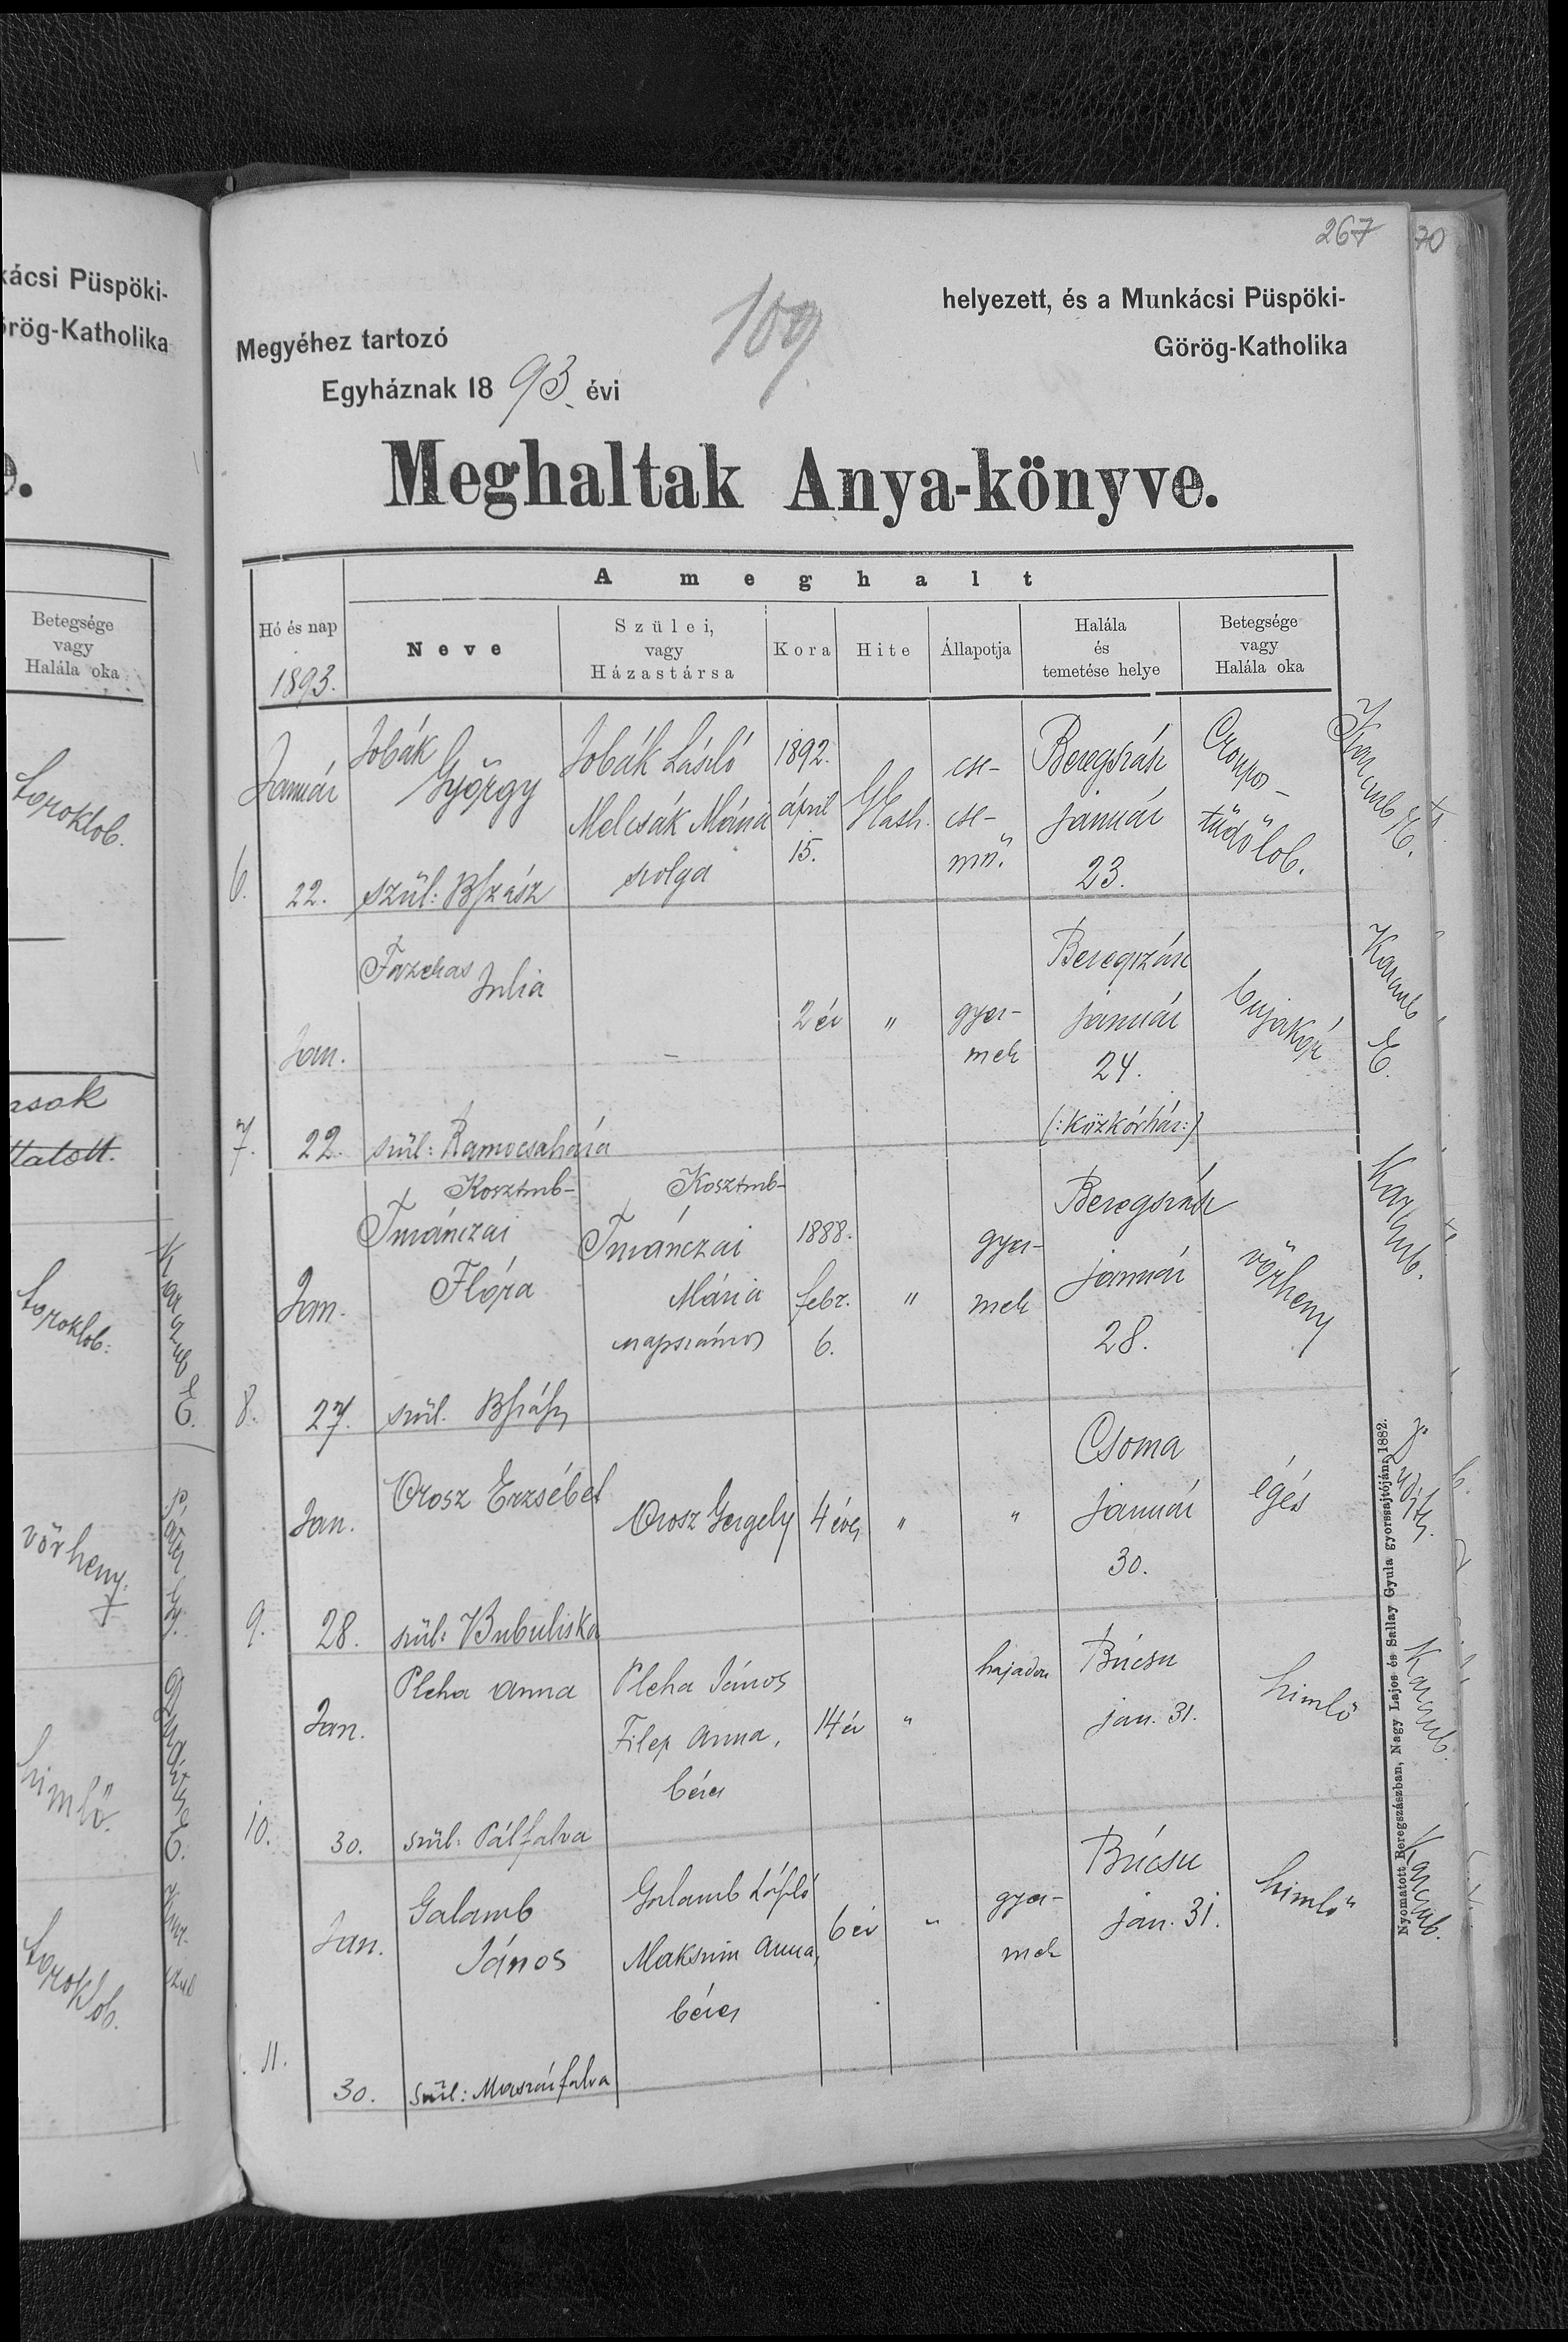 kácsi Püspöki-
örög-Katholika
e.
Betegsége
vagy
Halála oka
toroklob.
asok
ttatott.
toroklob.
vörheny.
himlö.
toroklob.
267
70
109
helyezett, és a Munkácsi Püspöki-
Megyéhez tartozó
Görög-Katholika
Egyháznak 1893. évi
Meghaltak Anya-könyve.
A meghalt
Hó és nap
1893.
Neve
Szülei,
vagy
Házastársa
Kora
Hite
Állapotja
Halála
és
temetése helye
Betegsége
vagy
Halála oka
6.
Január
22.
Jobák
György
szül: Bszász
Jobák László
Melcsák Mária
szolga
1892.
ápril
15.
GKath.
cse-
cse-
mő.
Beregszász
január
23.
Croupos-
tüdőlob.
7.
Jan.
22.
Fazekas
Julia
szül: Ramocsaháza
–
2 év
"
gyer-
mek
Beregszász
január
24.
(: közkórház :)
bujakór
Karcub E.
8.
Jan.
27.
Kosztub-
Tivánczai
Flóra
szül. Bszász
Kosztub-
Tivánczai
Mária
napszámos
1888.
febr.
6.
"
gyer-
mek
Beregszász
január
28.
vörheny
9.
Jan.
28.
Orosz Erzsébet
szül: Bubuliska
Orosz Gergely
4 éves
"
"
Csoma
január
30.
égés
10.
Jan.
30.
Pleha Anna
szül: Pálfalva
Pleha János
Filep Anna,
béres
14 év
"
hajadon
Búcsu
jan. 31.
himlö
Karcub.
11.
Jan.
30.
Galamb
János
szül: Maszárfalva
Galamb László
Maksim Anna,
béres
6 év
"
gyer-
mek
Búcsu
jan. 31.
himlö
Karcub.
Nyomatott Beregszászban, Nagy Lajos és Sallay Gyula gyorssajtóján, 1882.